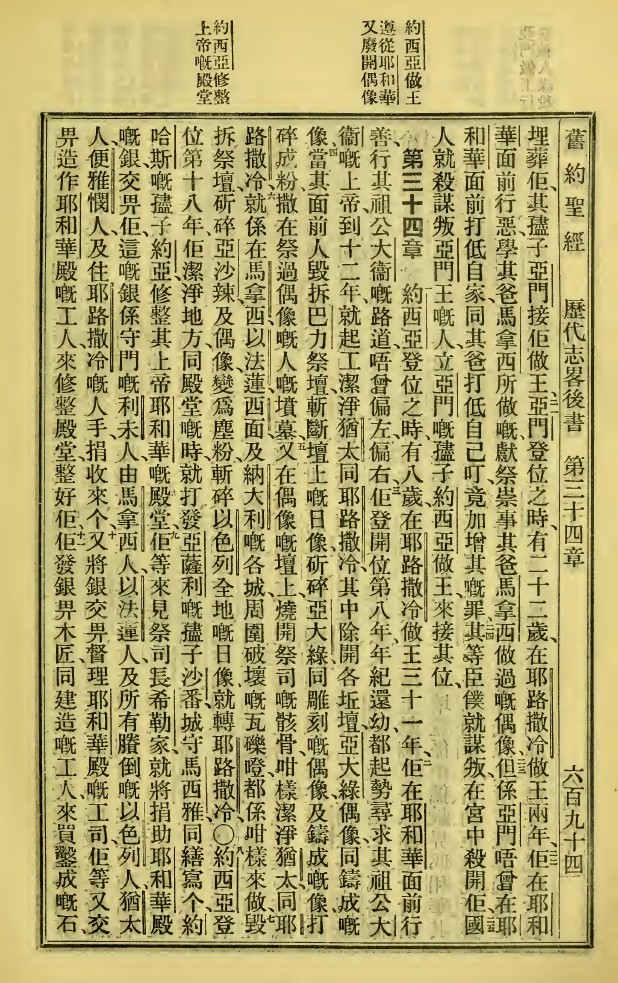 約西亞做王
遵從耶和華
又廢開偶像
約西亞修整
上帝嘅殿堂
舊約聖經 歷代志畧後書 第三十四章 六百九十四
埋葬佢其孻子亞門接佢做王亞門登位之時有二十二歲在耶路撒冷做王兩年佢在耶和
華面前行惡學其爸馬拿西所做嘅獻祭崇事其爸馬拿西做過嘅偶像但係亞門唔曾在耶
和華面前打低自家同其爸打低自己叮竟加增其嘅罪其等臣僕就謀叛在宮中殺開佢國
人就殺謀叛亞門王嘅人立亞門嘅孻子約西亞做王來接其位
第三十四章 約西亞登位之時有八歲在耶路撒冷做王三十一年佢在耶和華面前行
善行其祖公大衞嘅路道唔曾偏左偏右佢登開位第八年年紀還幼都起勢尋求其祖公大
衞嘅上帝到十二年就起工潔淨猶太同耶路撒冷其中除開各坵壇亞大綠偶像同鑄成嘅
像當其面前人毀拆巴力祭壇斬斷壇上嘅日像斫碎亞大綠同雕刻嘅偶像及鑄成嘅像打
碎成粉撒在祭過偶像嘅人嘅墳墓又在偶像嘅壇上燒開祭司嘅骸骨咁樣潔淨猶太同耶
路撒冷就係在馬拿西以法蓮西面及納大利嘅各城周圍破壞嘅瓦礫噔都係咁樣來做毀
拆祭壇斫碎亞沙辣及偶像變爲塵粉斬碎以色列全地嘅日像就轉耶路撒冷○約西亞登
位第十八年佢潔淨地方同殿堂嘅時就打發亞薩利嘅孻子沙番城守馬西雅同繕寫个約
哈斯嘅孻子約亞修整其上帝耶和華嘅殿堂佢等來見祭司長希勒家就將捐助耶和華殿
嘅銀交畀佢這嘅銀係守門嘅利未人由馬拿西人以法蓮人及所有賸倒嘅以色列人猶太
人便雅憫人及住耶路撒冷嘅人手捐收來个又將銀交畀督理耶和華殿嘅工司佢等又交
畀造作耶和華殿嘅工人來修整殿堂整好佢佢發銀畀木匠同建造嘅工人來買鑿成嘅石